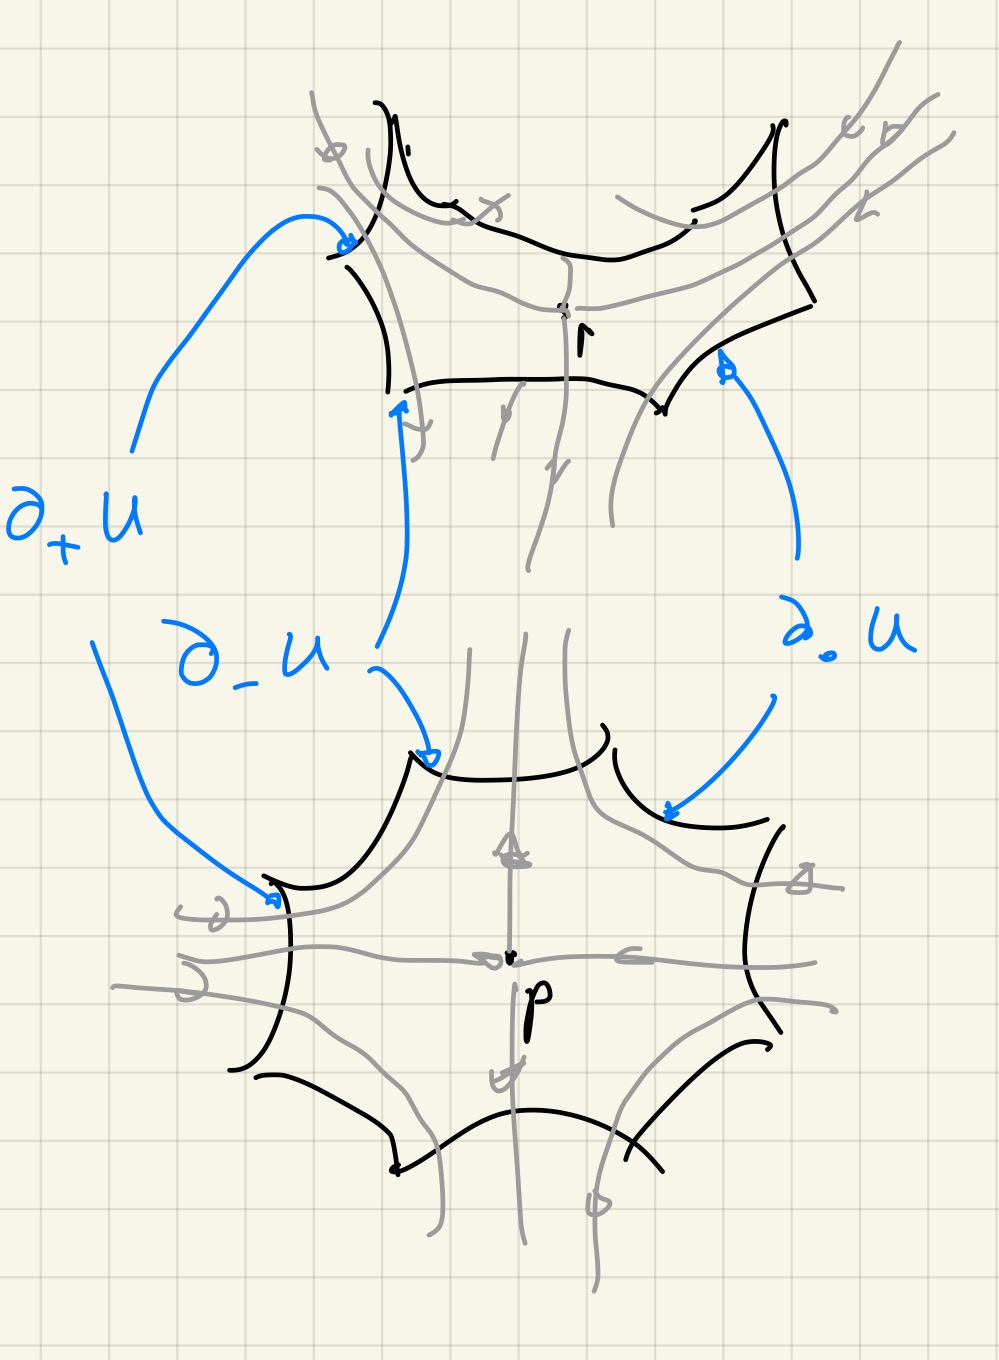 r
∂₊ U
∂₋ U
∂. U
p